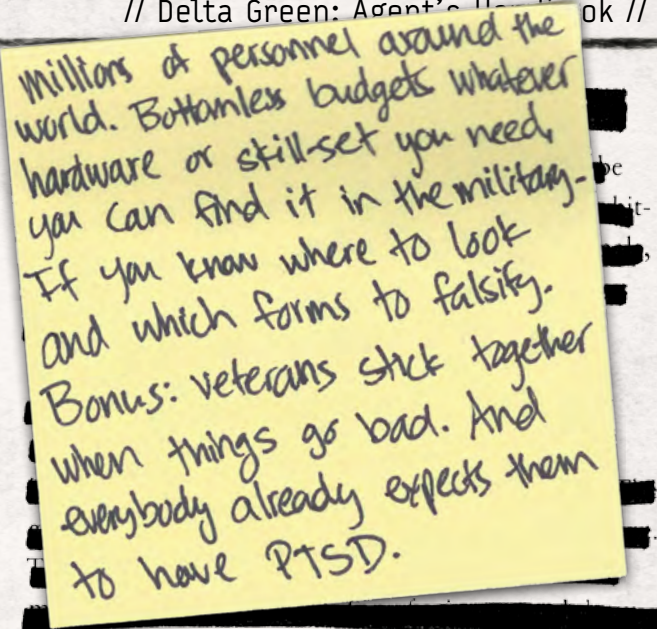 // Delta Green: Agent's Handbook //
millions of personnel around the
world. Bottomless budgets whatever
hardware or skill-set you need,
you can find it in the military-
If you know where to look
and which forms to falsify.
Bonus: veterans stick together
when things go bad. And
everybody already expects them
to have PTSD.
be
hit-